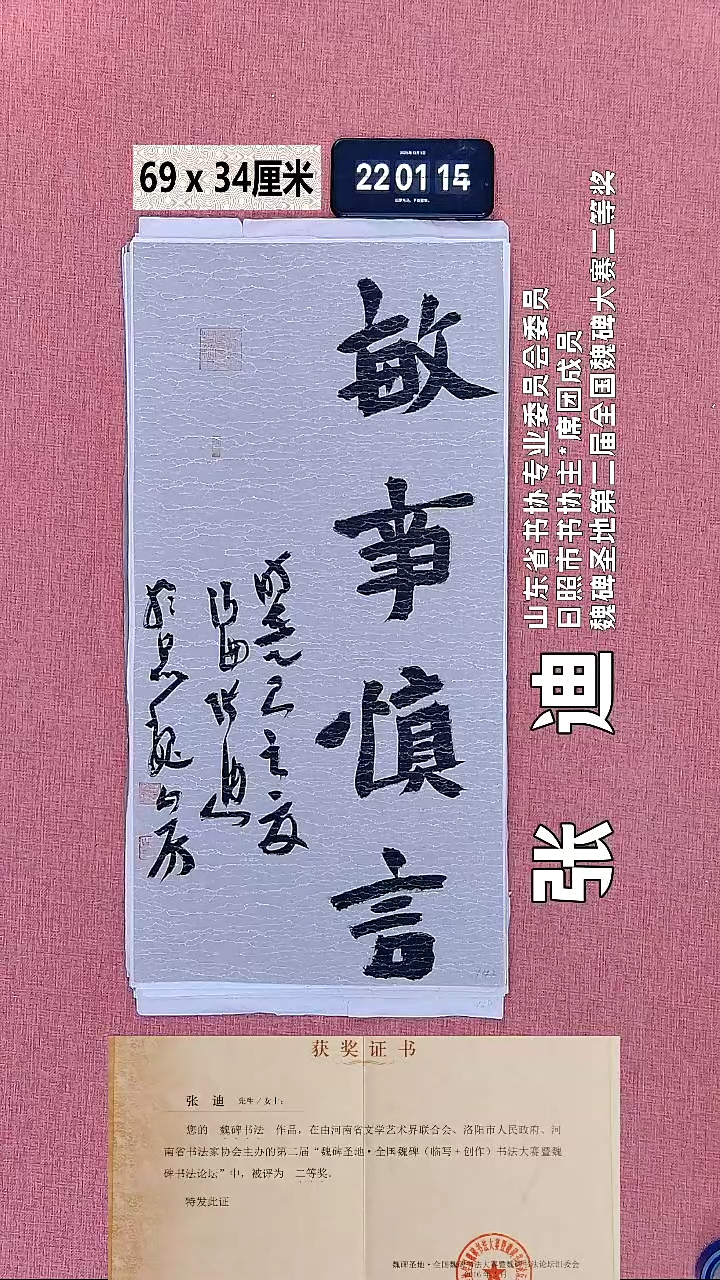 69 x 34厘米
22 01 15
敏事慎言
山东省书协专业委员会委员
日照市书协主*席团成员
魏碑圣地第二届全国魏碑大赛二等奖
张 迪
获奖证书
张 迪 先生/女士:
您的 魏碑书法 作品，在由河南省文学艺术界联合会、洛阳市人民政府、河
南省书法家协会主办的第二届“魏碑圣地·全国魏碑（临写+创作）书法大赛暨魏
碑书法论坛”中，被评为 二等奖.
特发此证
魏碑圣地·全国魏碑书法大赛暨魏碑书法论坛组委会